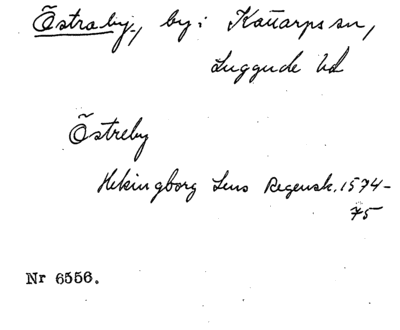 Östraby, by i Kattarps sn,
Luggude hd
Östreby
Helsingborg Lens Regensk. 1574-
75
Nr 6556.